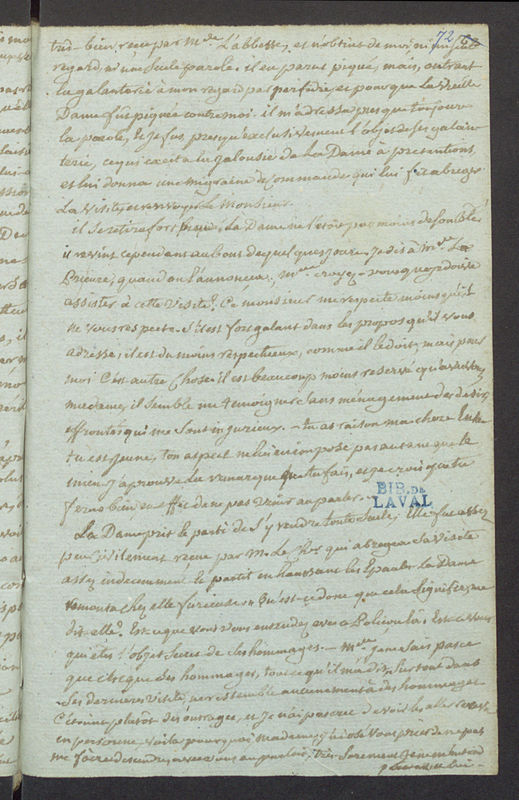 72
très-bien reçu par Mde L'abbesse, et n'obtint de moi, ni un seul
regard, ni une seule parole. il en parut piqué, mais, outrant
la galanterie à mon regard par perfidie, et pour que la vieille
Dame fut piquée contre moi. il m'adressa presque toujours
la parole, et je fus presqu'exclusivement l'objet de ses galan-
terie, ce qui excita la jalousie de la Dame à prétentions
et lui donna une migraine de commande qui lui fit abréger
La visite, et renvoyer le Monsieur.
il se retira fort piqué, La Dame ne l'étoit pas moins de son côté.
il revint cependant au bout de quelques jours. je dis à Mde La
Prieure, quand on l'annonça; Mme croyez-vous que je doive
assister à cette visite? Ce monsieur me respecte moins qu'il
ne vous respecte. S'il est fort galant dans les propos qu'il vous
adresse, il est du moins respectueux, comme il le doit; mais pour
moi c'est autre chose il est beaucoup moins reservé
madame, il semble me témoigner sans ménagement des désirs
effrontés qui me sont injurieux. - tu as raison ma chere
tu es jeune, ton aspect ne lui en impose pas autant que le
mien, j'approuve la remarque que tu fais, et je crois que tu
feras bien en effet de ne pas venir au parloir. -
BIB. DE
LAVAL
La Dame prit le parti de s'y rendre toute seule; Elle fut assez
peu civilement reçue par M. Le qui abrégea sa visite
assez indécemment et partit en haussant les Epaules. La Dame
remonta chez elle furieuse. Qu'est-ce donc que cela signifie, me
dit-elle? Est-ce que vous vous entendez avec ce Polisson là? Est-ce vous
qui êtes l'objet secret de ses hommages. - Mme je ne sais pas ce
que c'est que des hommages, tout ce qu'il m'a dit, surtout dans
Ses dernieres visites, ne ressemble aucunement à des hommages
C'étoient plutôt des outrages, et je n'ai pas crû devoir les aller
en personne voilà pourquoi madame, j'ai osé vous prier de ne pas
me faire descendre avec vous au parloir. Très sûrement